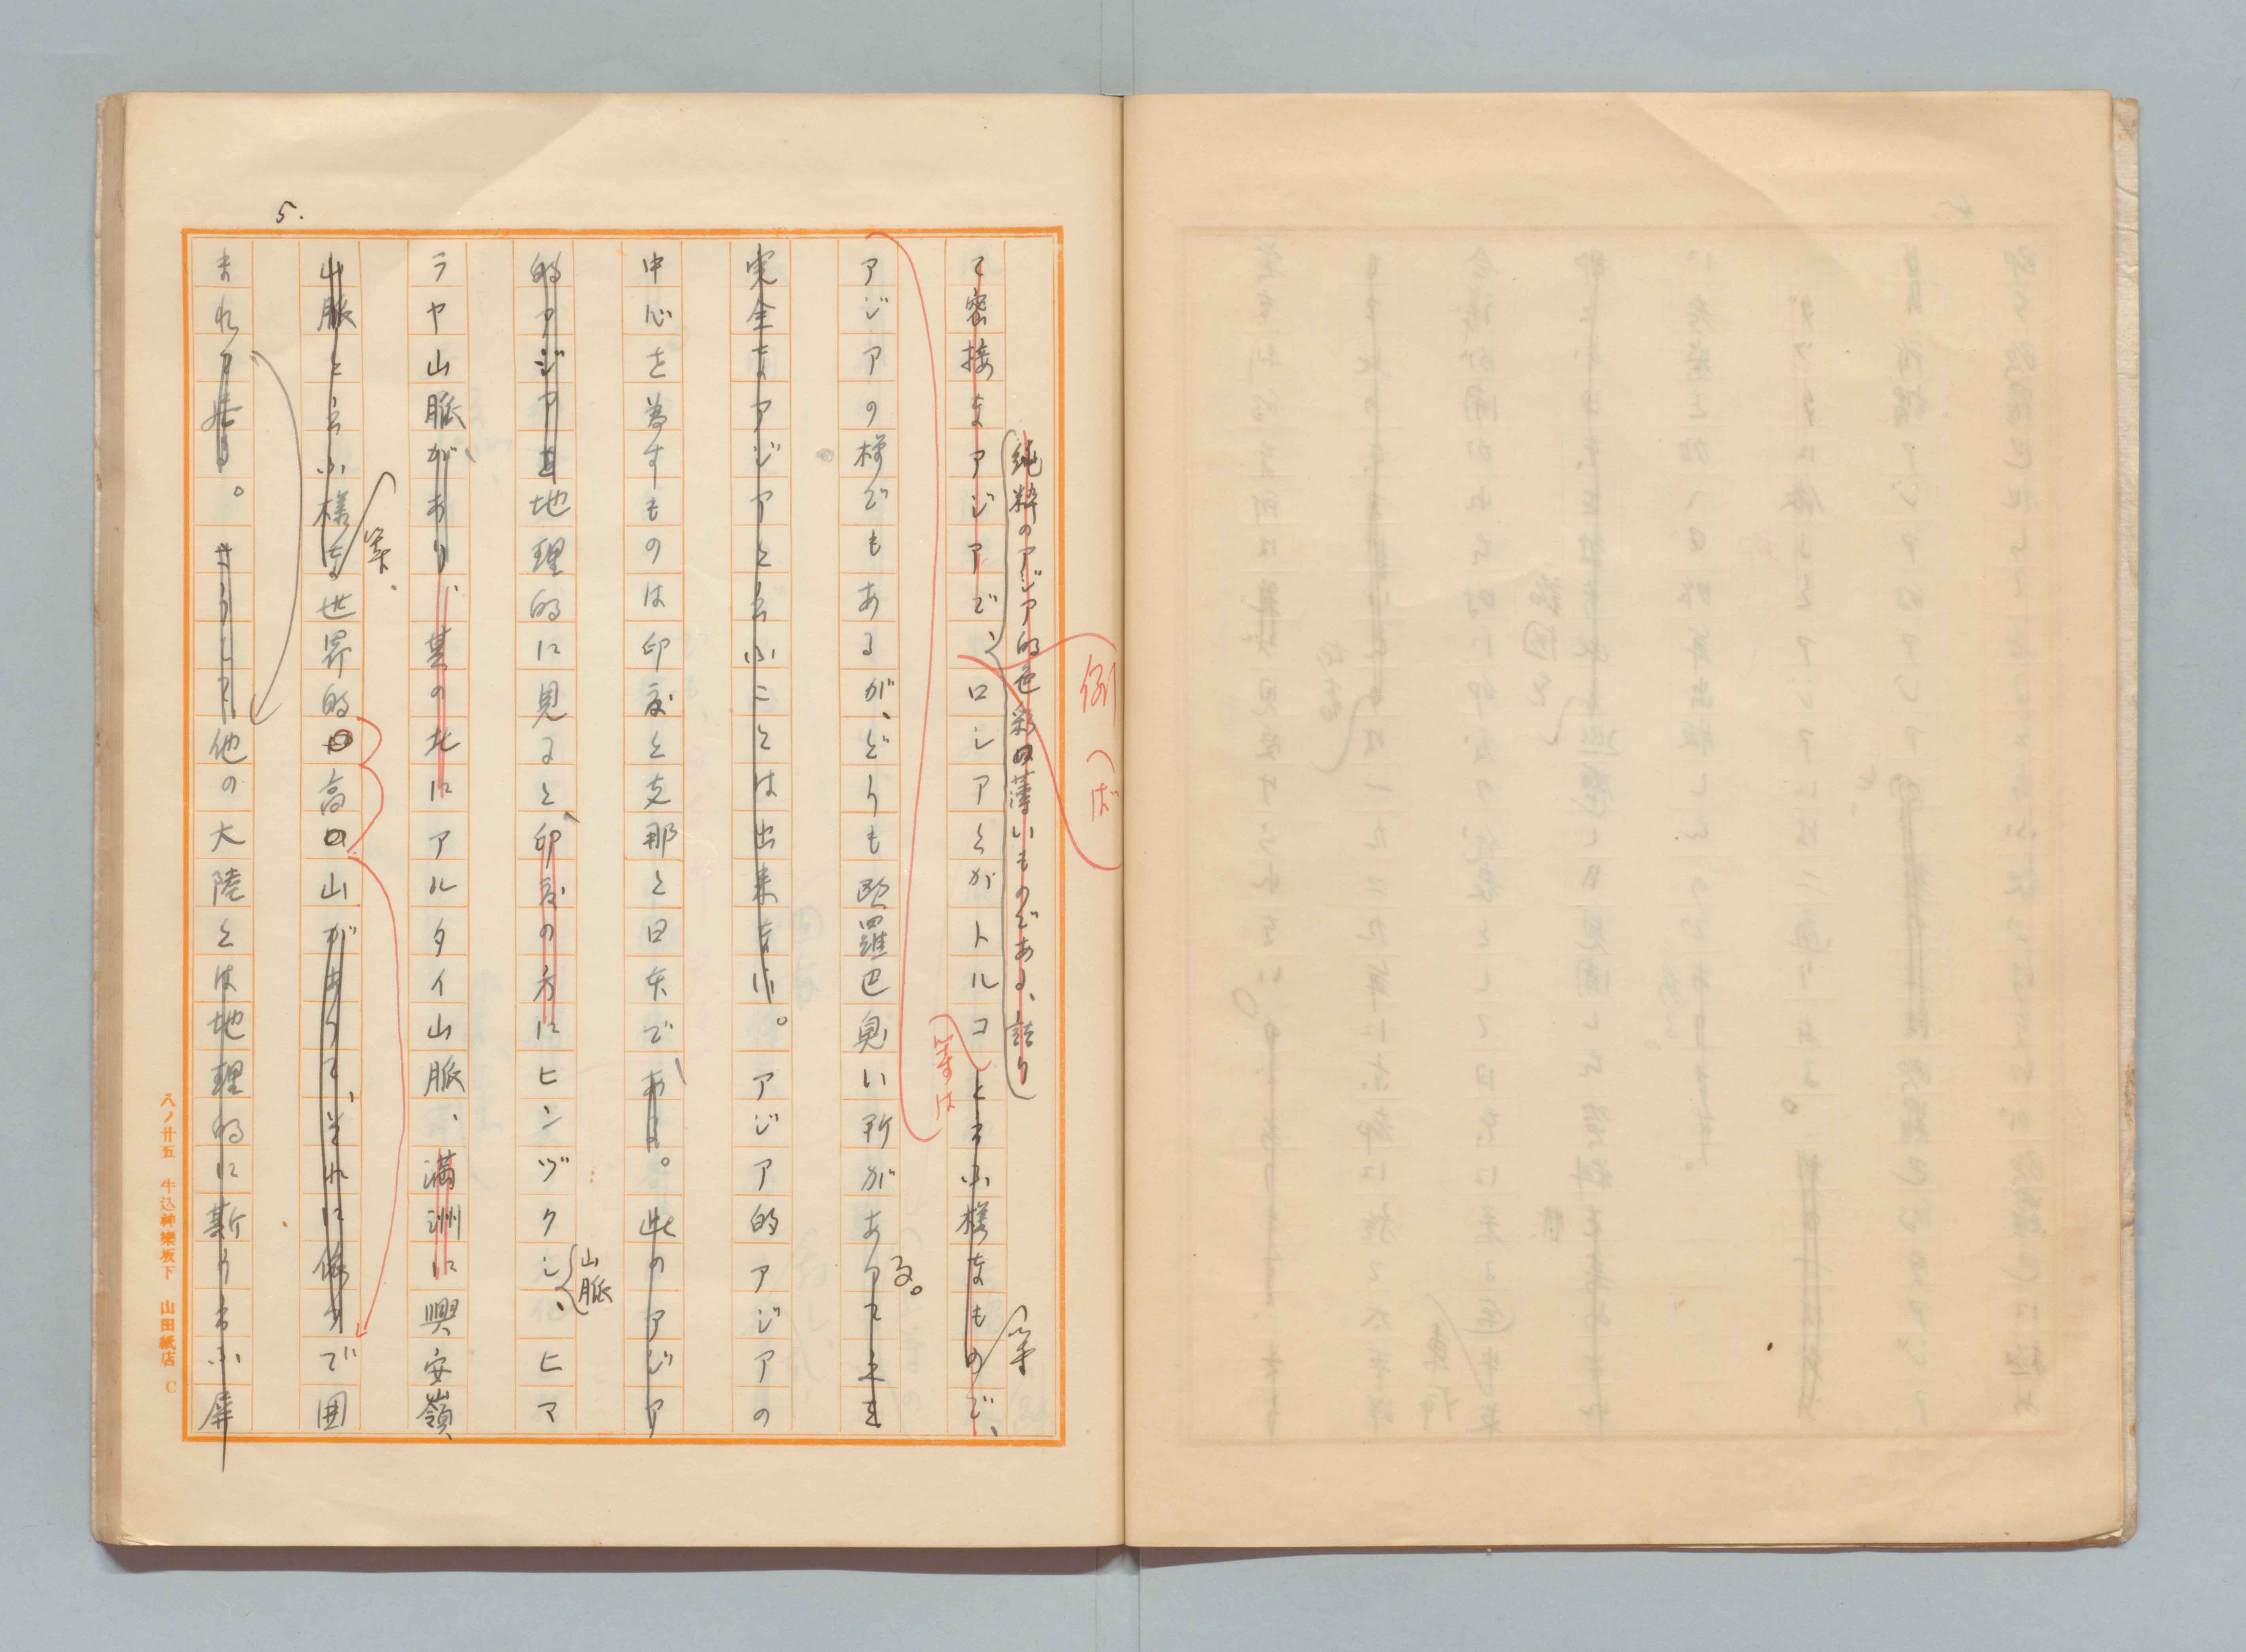 5.
例へば
純粋のアジア的色彩の薄いものである、詰り
て密接なアジアで、ロシアとかトルコと云ふ様なもので、
等は
等
アジアの様でもあるが、どうも欧羅巴臭い所があつて之を
る。
完全なアジアと云ふことは出来ない。アジア的アジアの
中心を為すものは印度と支那と日本である。此のアジア
的アジアを地理的に見ると、印度の方にヒンヅクシ、ヒマ
山脈
ラヤ山脈があり、其の北にアルタイ山脈、満洲に興安嶺
山脈と云ふ様な世界的の高い山があつて、それに依つて囲
等、
まれて居る。さうして他の大陸とは地理的に斯う云ふ屏
八ノ廿五 牛込神樂坂下 山田紙店 C